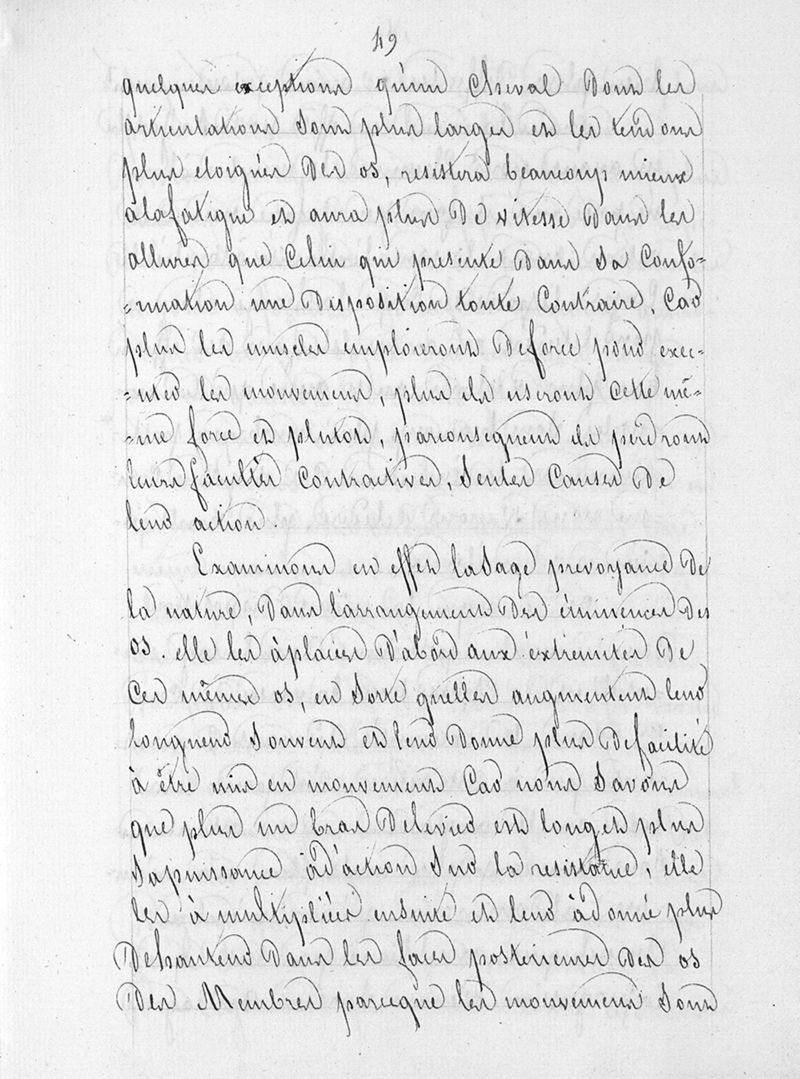 49
quelques exceptions qu'un cheval dont les
articulations sont plus larges et les tendons
plus eloignés des os, resistera beaucoup mieux
alafatigue et aura plus de vitesse dans les
allures que celui qui presente dans sa confo-
-rmation une disposition toute contraire, car
plus les muscles emploieront deforce pour exec-
-uter les mouvement, plus ils useront cette mê-
-me force et plutot, parconsequent ils perdront
leurs facultés contractives, seules causes de
leur action.
Examinons en effet lasage prevoyance de
la nature, dans l'arrangement des éminences des
os. elle les àplacées d'abord aux éxtremités de
ces mêmes os, en sorte quelles augmentent leur
longueur souvent et leur donne plus defacilité
à être mis en mouvement car nous savons
que plus un bras delevier est long et plus
sapuissance àd'action sur la resistance, elle
les à multipliées ensuite et leur àdonné plus
dehauteur dans les faces posterieures des os
des Membres parceque les mouvement sont